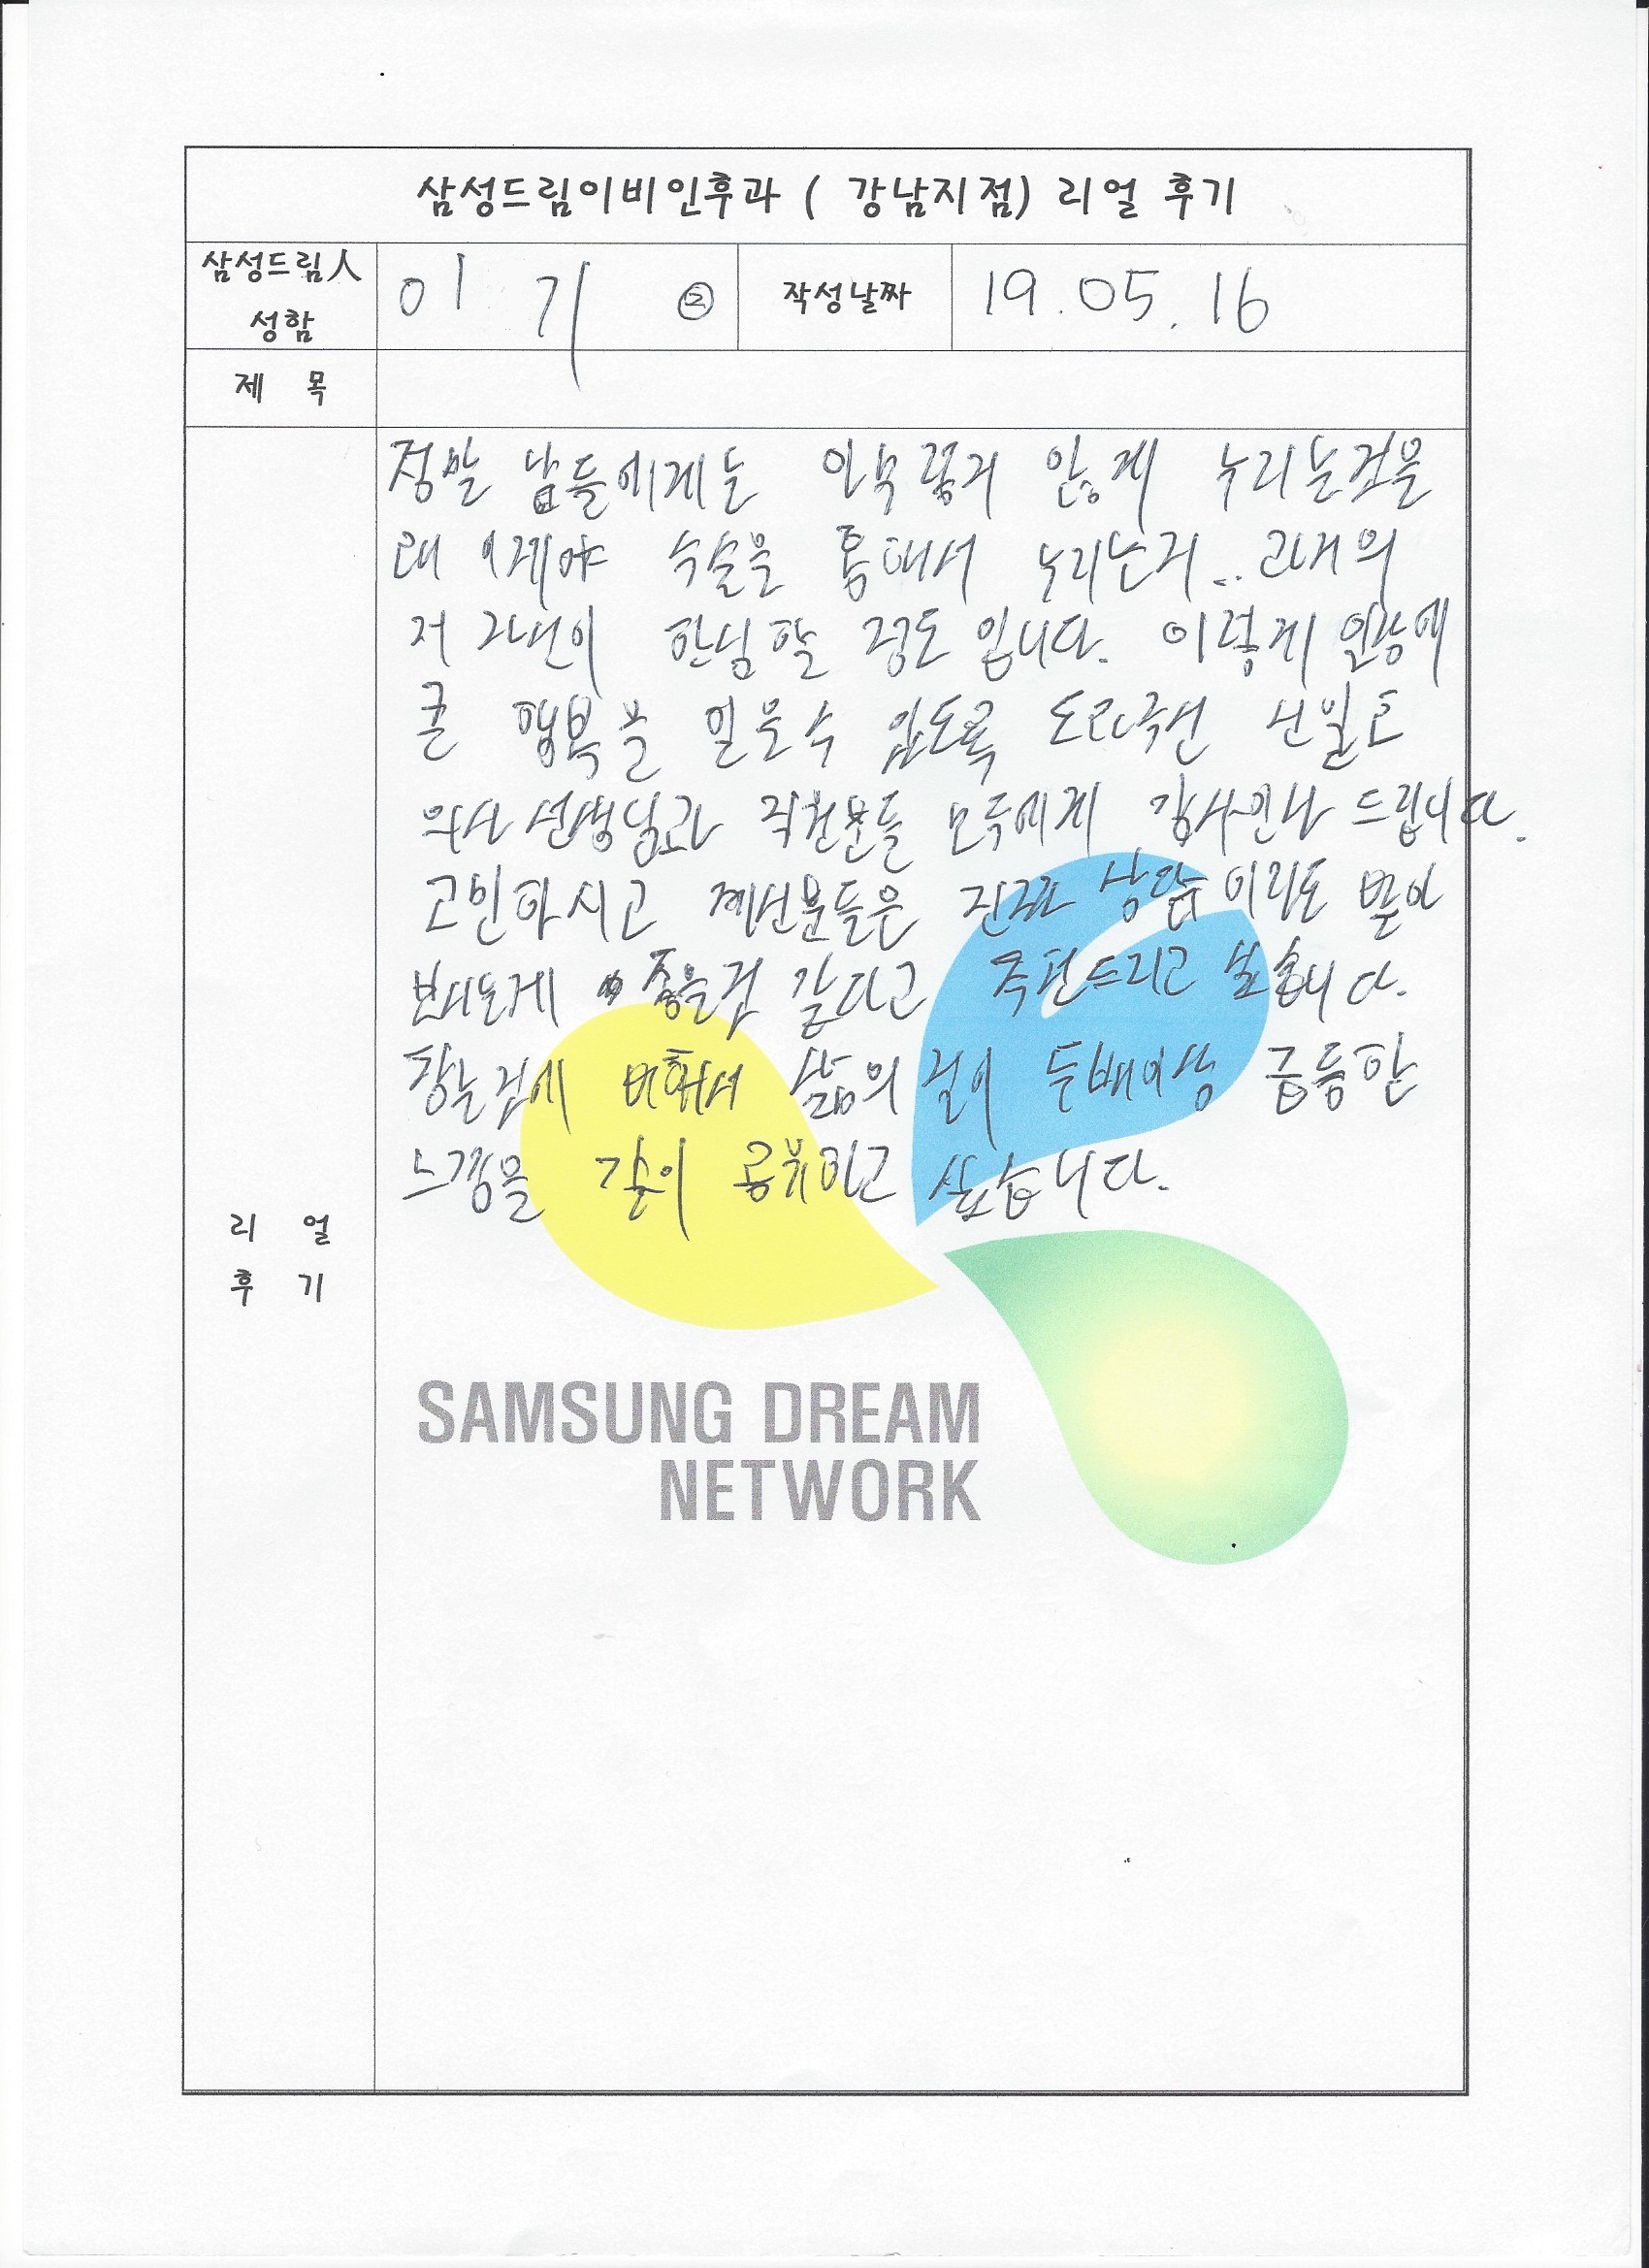 삼성드림이비인후과 ( 강남지점) 리얼 후기
삼성드림人
성함
이 기 ②
작성날짜
19.05.16
제 목
정말 남들에게는 아무렇지 않게 누리는것을
왜 이제야 수술을 통해서 누리는지.. 과거의
저 자신이 한심할 정도 입니다. 이렇게 인생에
큰 행복을 얻을수 있도록 도와주신
의사 선생님과 직원분들 모두에게 감사인사 드립니다.
고민하시고 계신분들은 진짜 상담이라도 받아
보시는게 좋을것 같다고 추천드리고 싶습니다.
참는것에 비해서 삶의 질이 두배이상 급등한
느낌을 같이 공유하고 싶습니다.
리 얼
후 기
SAMSUNG DREAM
NETWORK